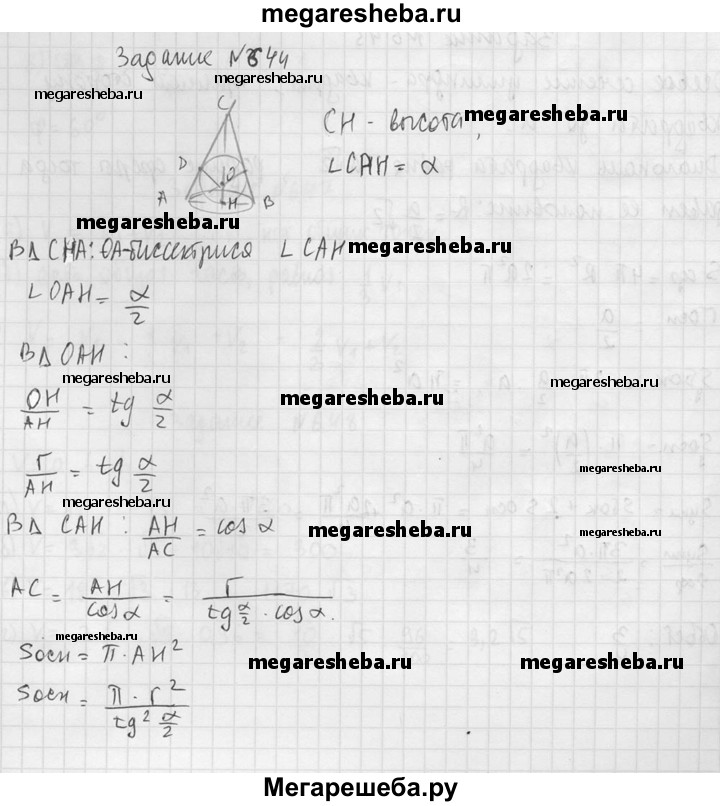 megaresheba.ru
Задание №644
megaresheba.ru megaresheba.ru
C
CH - высота, megaresheba.ru
∠CAH = α
D O
A H B
megaresheba.ru
В Δ CHA: OA-биссектриса ∠ CAH megaresheba.ru
∠ OAH = α/2
В Δ OAH :
megaresheba.ru megaresheba.ru megaresheba.ru
OH/AH = tg α/2
r/AH = tg α/2
megaresheba.ru
megaresheba.ru
В Δ CAH : AH/AC = cos α megaresheba.ru
AC = AH/cosα = r/(tg α/2 · cos α.
megaresheba.ru
Sосн = π · AH²
megaresheba.ru megaresheba.ru
Sосн = π · r²/tg² α/2
Мегарешеба.ру